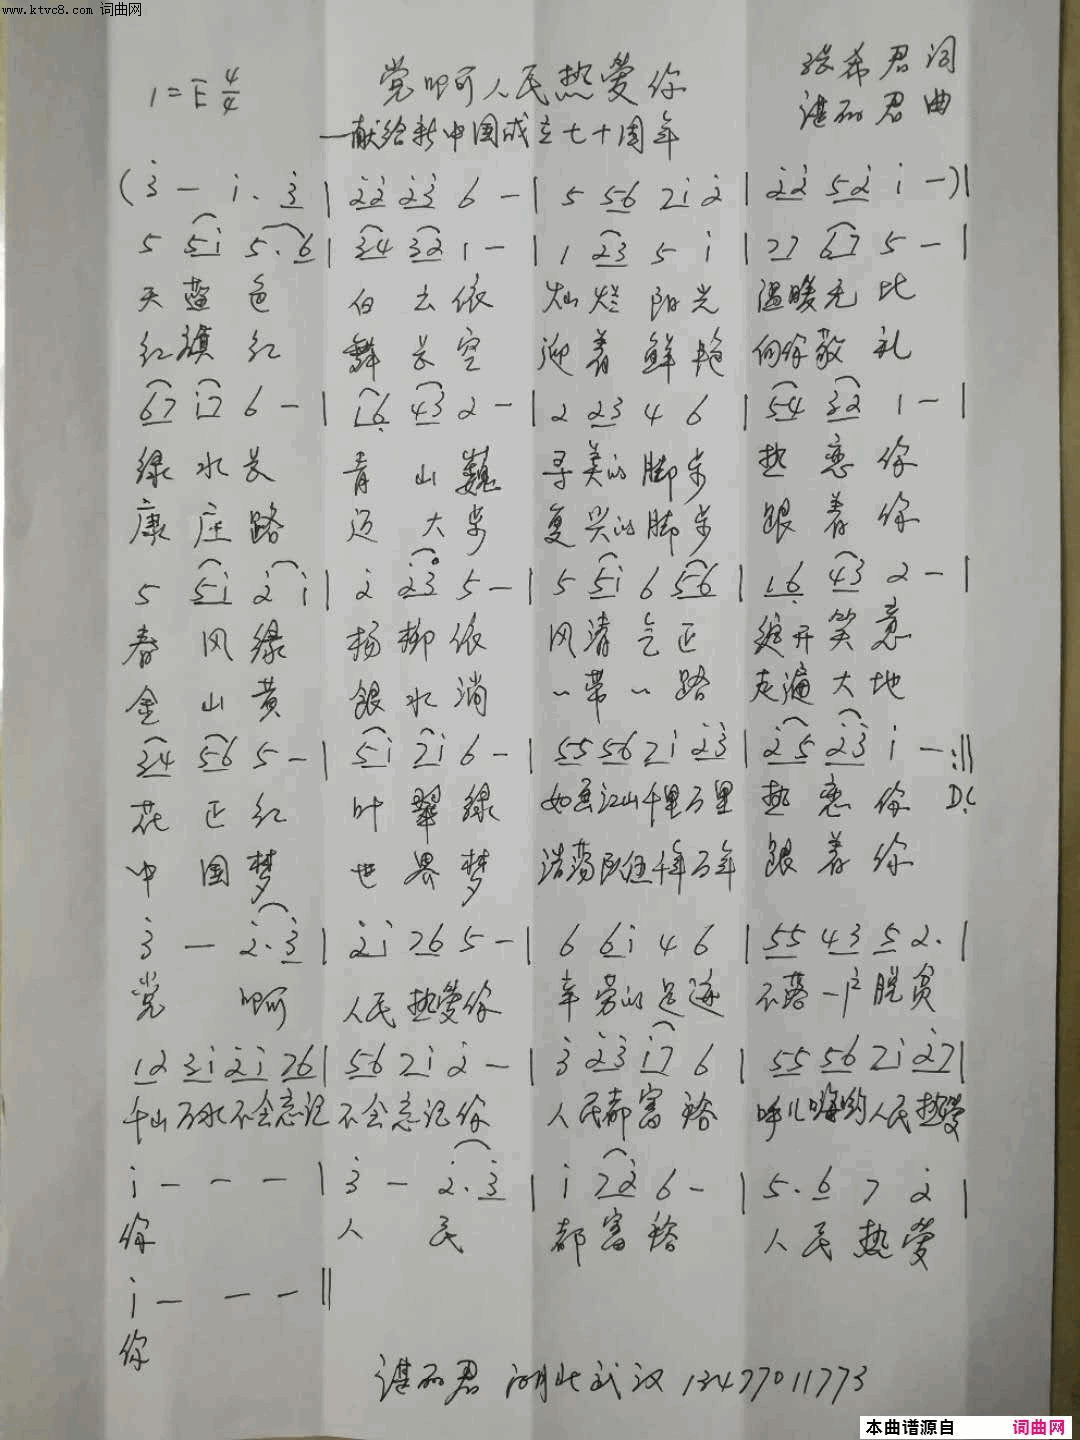 www.ktvc8.com 词曲网
1=E 4/4 党啊人民热爱你 张希君词
—献给新中国成立七十周年 谌丽君曲
(3̇ — 1̇. 3̇ | 2̇2̇ 2̇3̇ 6 — | 5 56 71̇ 2̇ | 2̇2̇ 52̇ 1̇ —)|
5 51̇ 5. 6 | 34 32 1 — | 1 23 5 1̇ | 77 67 5 — |
天蓝色 白云依 灿烂阳光 温暖无比
红旗红 舞长空 迎着鲜艳 向你敬礼
67 1̇7 6 — | 16̣ 43 2 — | 2 23 4 6 | 54 32 1 — |
绿水长 青山巍 寻美的脚步 热恋你
康庄路 迈大步 复兴的脚步 跟着你
5 51̇ 2̇ 1̇ | 2̇ 2̇3̇ 5 — | 5 51̇ 6 56 | 16̣ 43 2 — |
春风绿 杨柳依 风清气正 绽开笑意
金山黄 银水淌 一带一路 走遍大地
34 56 5 — | 51̇ 71̇ 6 — | 55 56 71̇ 2̇3̇ | 2̇5 2̇3̇ 1̇ — :‖
花正红 叶翠绿 如画江山千里万里 热恋你 D.C
中国梦 世界梦 浩荡队伍千年万年 跟着你
3̇ — 2̇. 3̇ | 2̇1̇ 76 5 — | 6 61̇ 4 6 | 55 43 5 2. |
党啊 人民热爱你 辛劳的足迹 不落一户脱贫
12 31̇ 2̇1̇ 76 | 56 71̇ 2̇ — | 3̇ 2̇3̇ 1̇7 6 | 55 56 71̇ 2̇7 |
千山万水不会忘记 不会忘记你 人民都富裕 呼儿嗨哟人民热爱
1̇ — — — | 3̇ — 2̇. 3̇ | 1̇ 72̇ 6 — | 5. 6 7 2̇ |
你 人民 都富裕 人民热爱
1̇ — — — ‖
你
谌丽君 湖北武汉 13477011773
本曲谱源自 词曲网